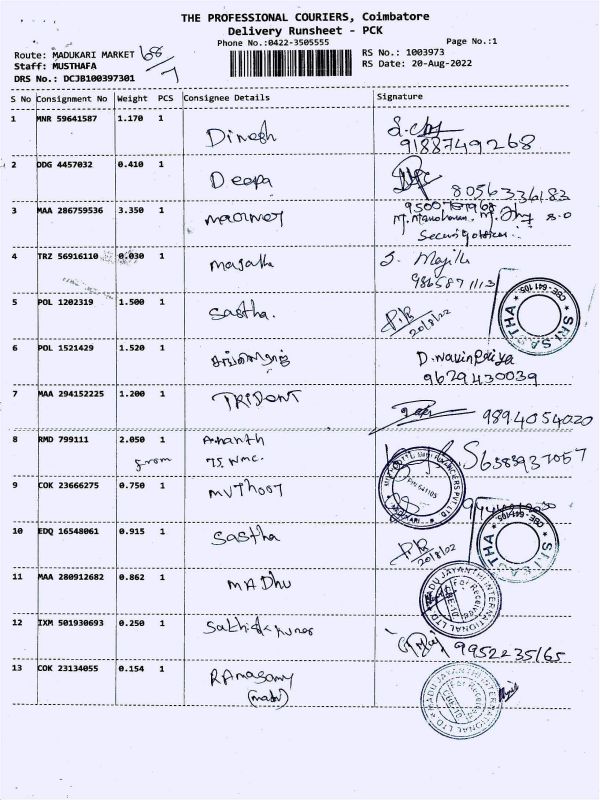 THE PROFESSIONAL COURIERS, Coimbatore
Delivery Runsheet - PCK
Phone No.:0422-3505555
Page No.:1
Route: MADUKARI MARKET 68/7
RS No.: 1003973
Staff: MUSTHAFA
RS Date: 20-Aug-2022
DRS No.: DCJB100397301
S No Consignment No Weight PCS Consignee Details Signature
1 MNR 59641587 1.170 1 Dinesh
9188749268
2 DDG 4457032 0.410 1 Deepa
8056336183
3 MAA 286759536 3.350 1
4 TRZ 56916110 0.030 1
5 POL 1202319 1.500 1 Sastha. P.R 20/8/22
SRI SASTHA CBE-641 105
6 POL 1521429 1.520 1
9629430039
7 MAA 294152225 1.200 1 TRIDENT 9894054020
8 RMD 799111 2.050 1 Ananth 6383937057
from
9 COK 23666275 0.750 1 Muthoot
10 EDQ 16548061 0.915 1 Sastha P.R 20/8/22
SRI SASTHA CBE-641 105
11 MAA 280912682 0.862 1 MADHU
MADU JAYANTHI INTERNATIONAL LTD
12 IXM 501930693 0.250 1 9952235165
13 COK 23134055 0.154 1 RAmasamy
MADU JAYANTHI INTERNATIONAL LTD